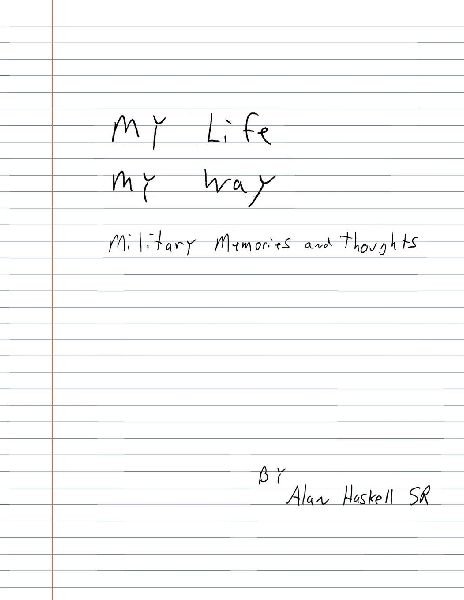 My Life
My Way
Military Memories and Thoughts
BY
Alan Haskell SR